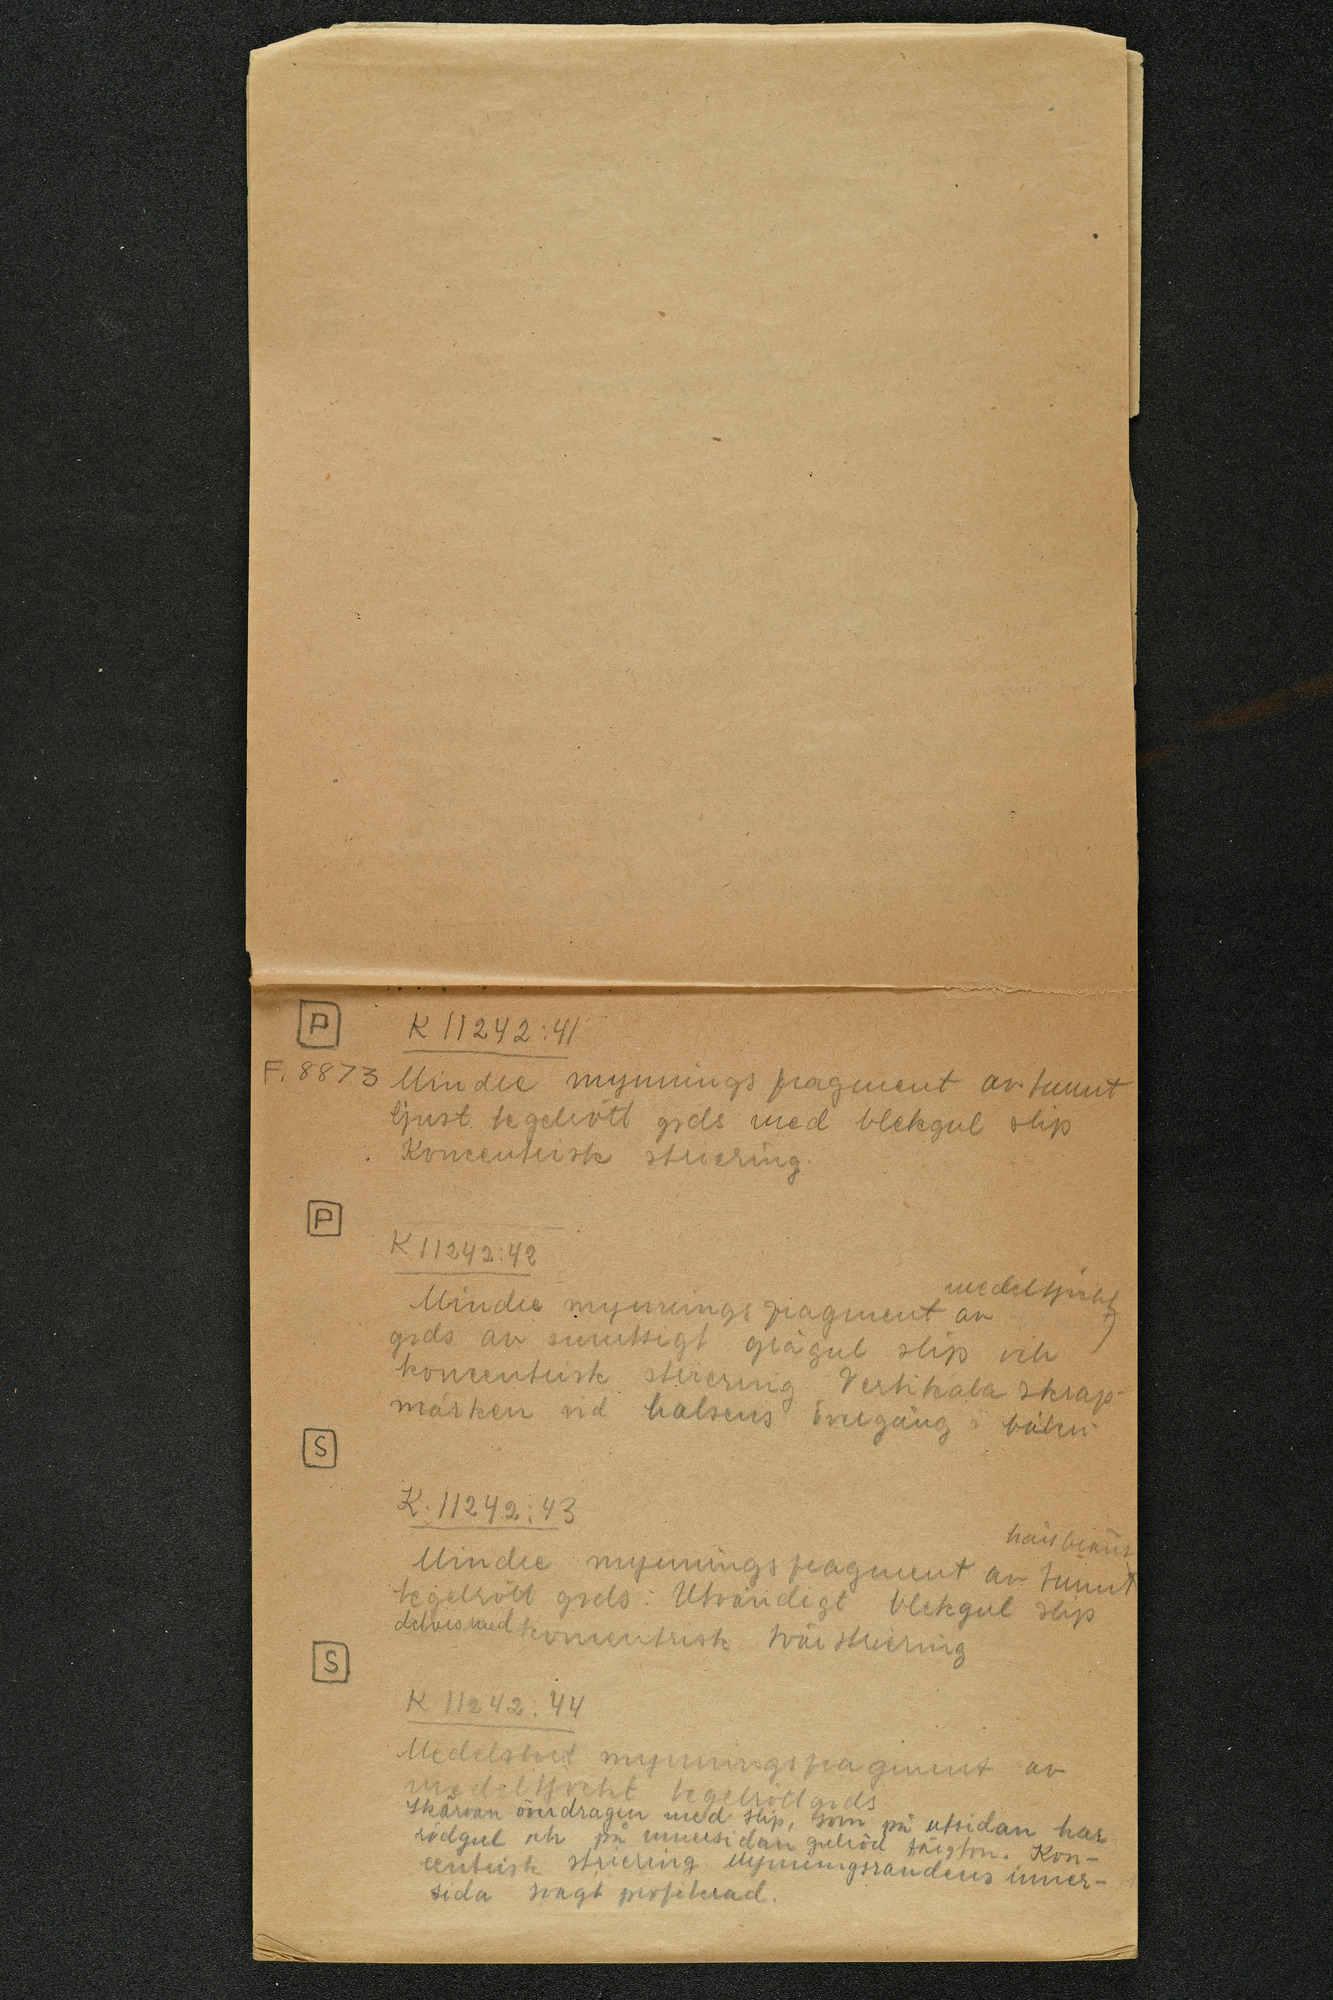 P
K 11242:41
F. 8873 Mindre mynningsfragment av tunnt
ljust tegelrött gods med blekgul slip
Koncentrisk striering
P
K 11242:42
medeltjockt
Mindre mynningsfragment av
gods av smutsigt grågul slip och
koncentrisk striering Vertikala skrap-
märken vid halsens övergång i buken
S
K. 11242:43
hårt bränt
Mindre mynningsfragment av tunnt
tegelrött gods. Utvändigt blekgul slip
delvis med koncentrisk tvärstriering
S
K 11242:44
Medelstort mynningsfragment av
medeltjockt tegelrött gods
Skärvan överdragen med slip, som på utsidan har
rödgul och på innersidan gulröd färgton. Kon-
centrisk striering Mynningsrandens inner-
sida svagt profilerad.